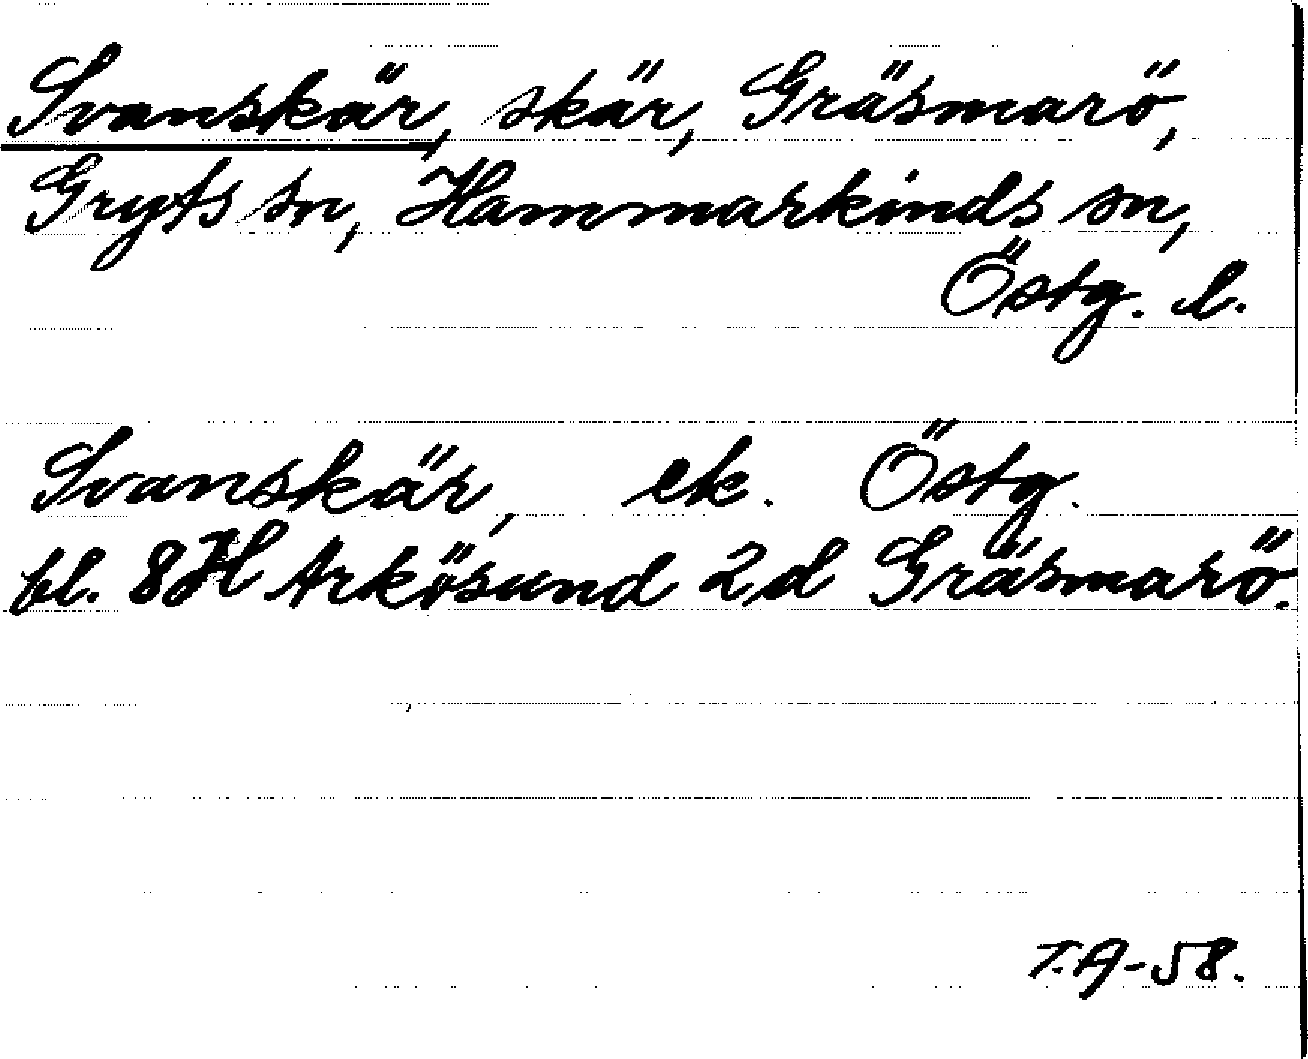 Svanskär, skär, Gräsmarö,
Gryts sn, Hammarkinds sn,
Östg. l.
Svanskär, ek. Östg.
bl. 8H Arkösund 2d Gräsmarö.
T.A-58.